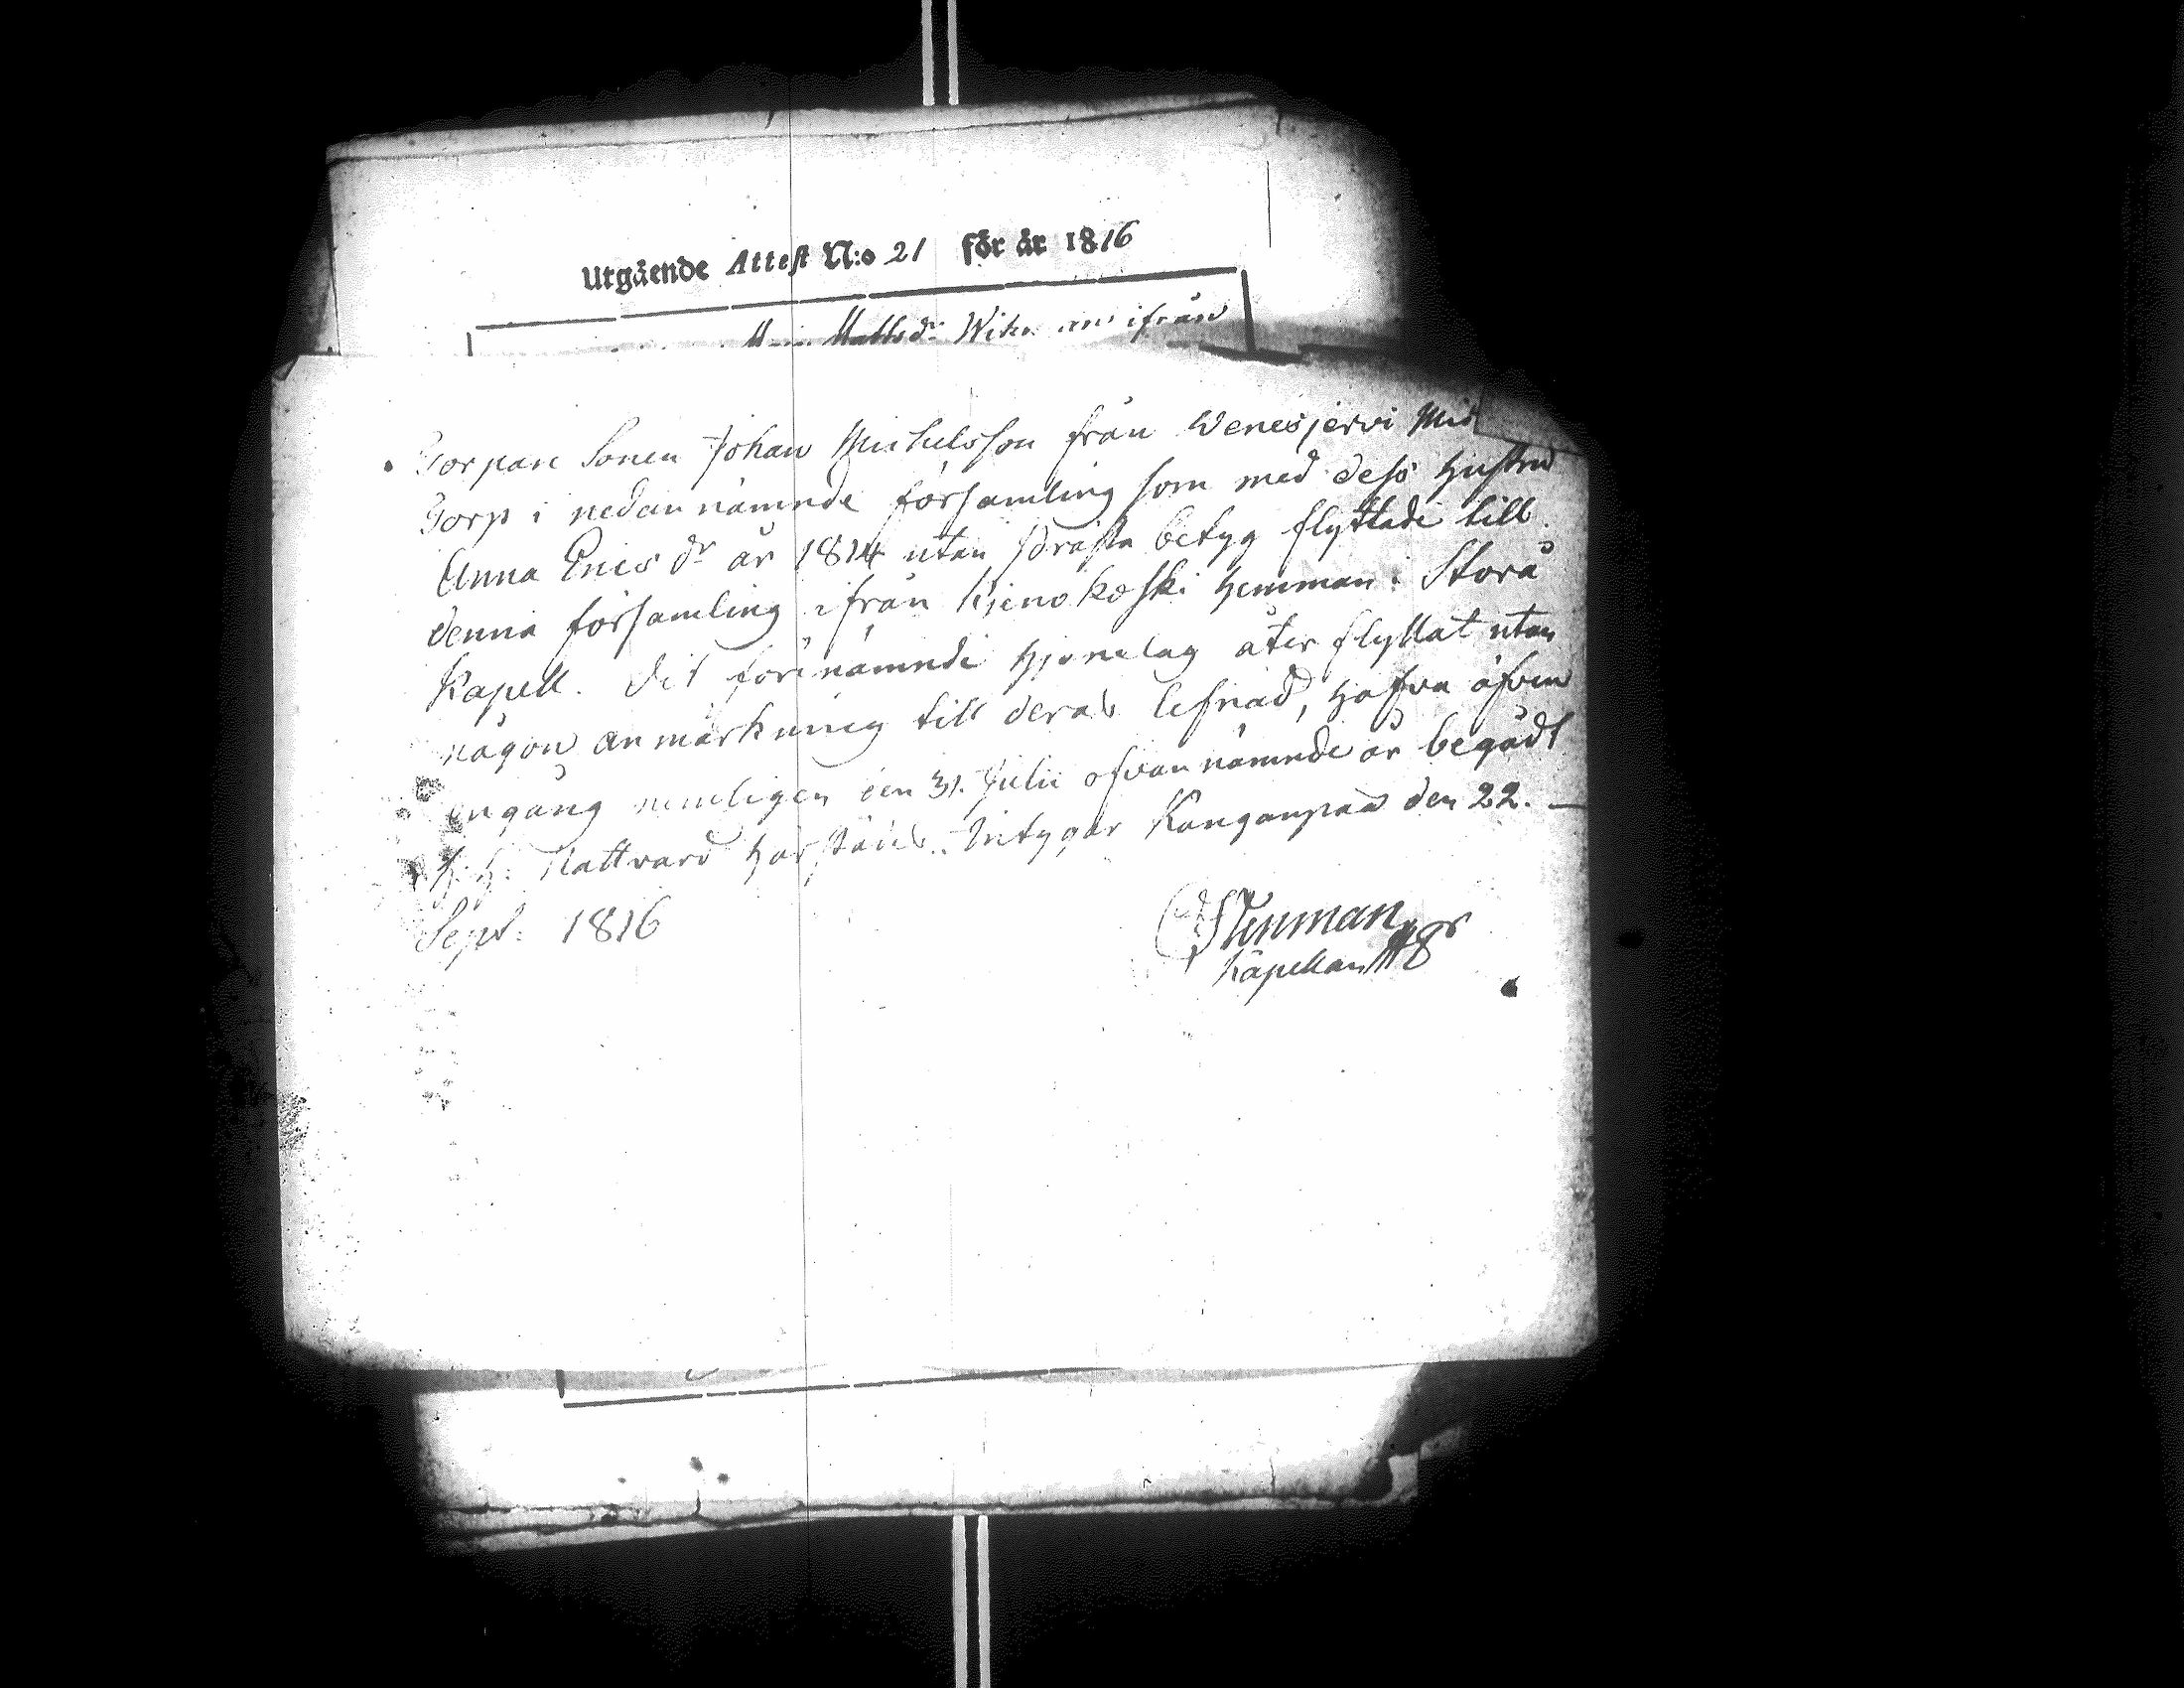 Utgående Attest N:o 21 för år 1816
Mattsdr ifrån
Torpare Sonen Johan Michelsson från Wenesjervi
Torp i nedannämnde församling som med dess Hustru
Anna Ericsdr år 1814 utan prästa betyg flyttade till
denna församling ifrån Kjenokoski Hemman i Storå
Kapell. Dit förenämnde Hjonelag åter flyttat utan
någon anmärkning till deras lefnad, Hafva äfven
engång nemligen den 31. Julii ofvannämnde år begådt
H. H. Nattvard härstädes. Intygar Kanganpää den 22. —
Sept. 1816
Stenman
Kapellan